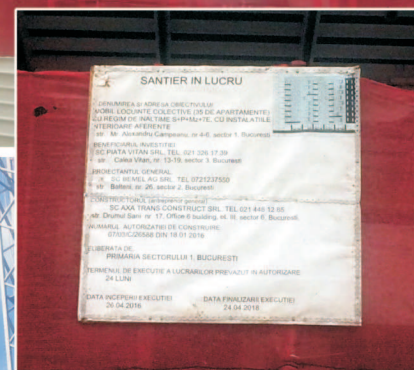 SANTIER IN LUCRU
DENUMIREA SI ADRESA OBIECTIVULUI
IMOBIL LOCUINTE COLECTIVE (35 DE APARTAMENTE)
CU REGIM DE INALTIME S+P+Mz+7E, CU INSTALATIILE
INTERIOARE AFERENTE
str. Mr. Alexandru Campeanu, nr 4-6, sector 1, Bucuresti
BENEFICIARUL INVESTITIEI
SC PIATA VITAN SRL, TEL. 021 326 37 39
Calea Vitan, nr. 13-19, sector 3, Bucuresti
PROIECTANTUL GENERAL
SC BEMEL AG SRL, TEL 0721237550
str. Balteni, nr. 26, sector 2, Bucuresti
CONSTRUCTORUL (antreprenor general)
SC AXA TRANS CONSTRUCT SRL, TEL 021 448 12 08
str. Drumul Sarii, nr. 17, Office 6 building, et. III, sector 6, Bucuresti
NUMARUL AUTORIZATIEI DE CONSTRUIRE
DIN 18 01 2016
ELIBERATA DE,
PRIMARIA SECTORULUI 1, BUCURESTI
TERMENUL DE EXECUTIE A LUCRARILOR PREVAZUT IN AUTORIZARE
24 LUNI
DATA INCEPERII EXECUTIEI DATA FINALIZARII EXECUTIEI
26.04.2016 24.04.2018